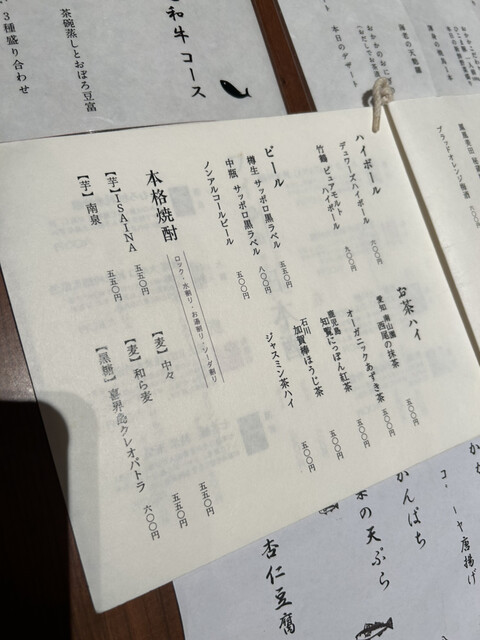 和牛コース
茶碗蒸しとおぼろ豆富
3種盛り合わせ
海老の天麩羅
本日のデザート
ブラッドオレンジ梅酒
ハイボール
デュワーズハイボール 六〇〇円
竹鶴 ピュアモルト
ハイボール 九〇〇円
ビール
樽生 サッポロ黒ラベル 五五〇円
中瓶 サッポロ黒ラベル 八〇〇円
ノンアルコールビール 五〇〇円
お茶ハイ
愛知 南山園 西尾の抹茶 五〇〇円
オーガニックあずき茶 五〇〇円
鹿児島 知覧にっぽん紅茶 五五〇円
石川 加賀棒ほうじ茶 五五〇円
ジャスミン茶ハイ 五〇〇円
本格焼酎
ロック・水割り・お湯割り・ソーダ割り
【芋】ISAINA 五五〇円
【芋】南泉 五五〇円
【麦】中々 五五〇円
【麦】和ら麦 五五〇円
【黒糖】喜界島クレオパトラ 六〇〇円
唐揚げ
がんばち
の天ぷら
杏仁豆腐